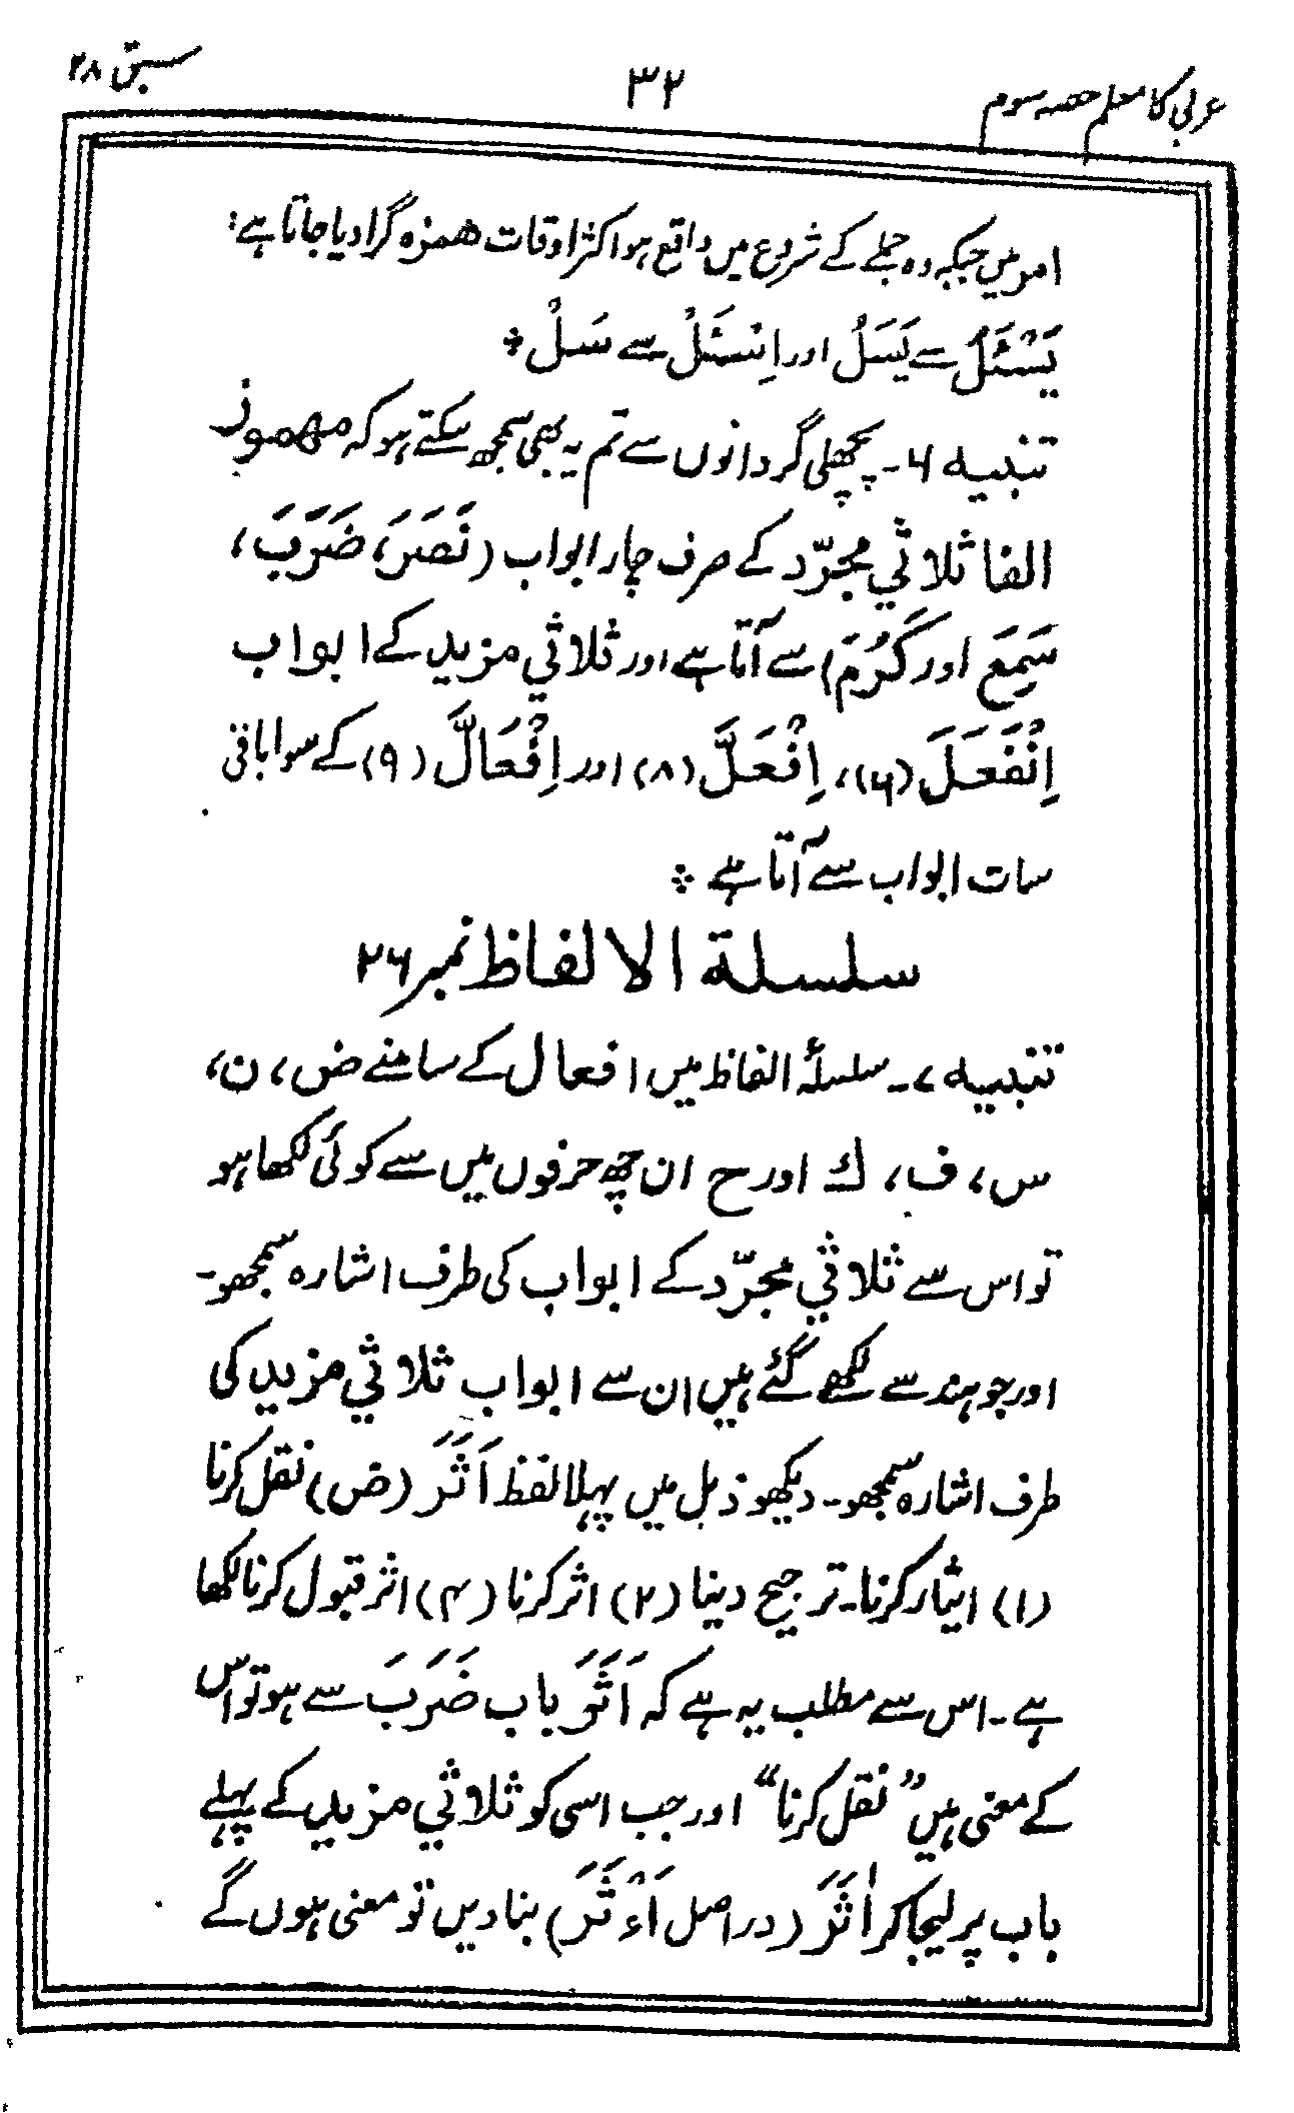 عربی کا معلم حصہ سوم
۳۲
سبق ۲۸
امر میں جبکہ وہ جملے کے شروع میں واقع ہو اکثر اوقات همزہ گرا دیا جاتا ہے:
یَسْئَلُ سے یَسَلُ اور اِسْئَلْ سے سَلْ ٭
تنبیہ ۶۔ پچھلی گردانوں سے تم یہ بھی سمجھ سکتے ہو کہ مهموز
الفا ثلاثي مجرّد کے صرف چار ابواب (نَصَرَ، ضَرَبَ،
سَمِعَ اور كَرُمَ) سے آتا ہے اور ثلاثي مزید کے ابواب
اِنْفَعَلَ (۶)، اِفْعَلَّ (۸) اور اِفْعَالَّ (۹) کے سوا باقی
سات ابواب سے آتا ہے ٭
سلسلة الالفاظ نمبر ۲۶
تنبیہ ۷۔ سلسلۂ الفاظ میں افعال کے سامنے ض، ن،
س، ف، ك اور ح ان چھ حرفوں میں سے کوئی لکھا ہو
تو اس سے ثلاثي مجرّد کے ابواب کی طرف اشارہ سمجھو۔
اور جو ہندسے لکھے گئے ہیں ان سے ابواب ثلاثي مزید کی
طرف اشارہ سمجھو۔ دیکھو ذیل میں پہلا لفظ اَثَرَ (ض) نقل کرنا
(۱) ایثار کرنا۔ ترجیح دینا (۲) اثر کرنا (۴) اثر قبول کرنا لکھا
ہے۔ اس سے مطلب یہ ہے کہ اَثَرَ باب ضَرَبَ سے ہو تو اس
کے معنی ہیں ”نقل کرنا“ اور جب اسی کو ثلاثي مزید کے پہلے
باب پر لیجا کر اٰثَرَ (دراصل اَءْثَرَ) بنا دیں تو معنی ہوں گے